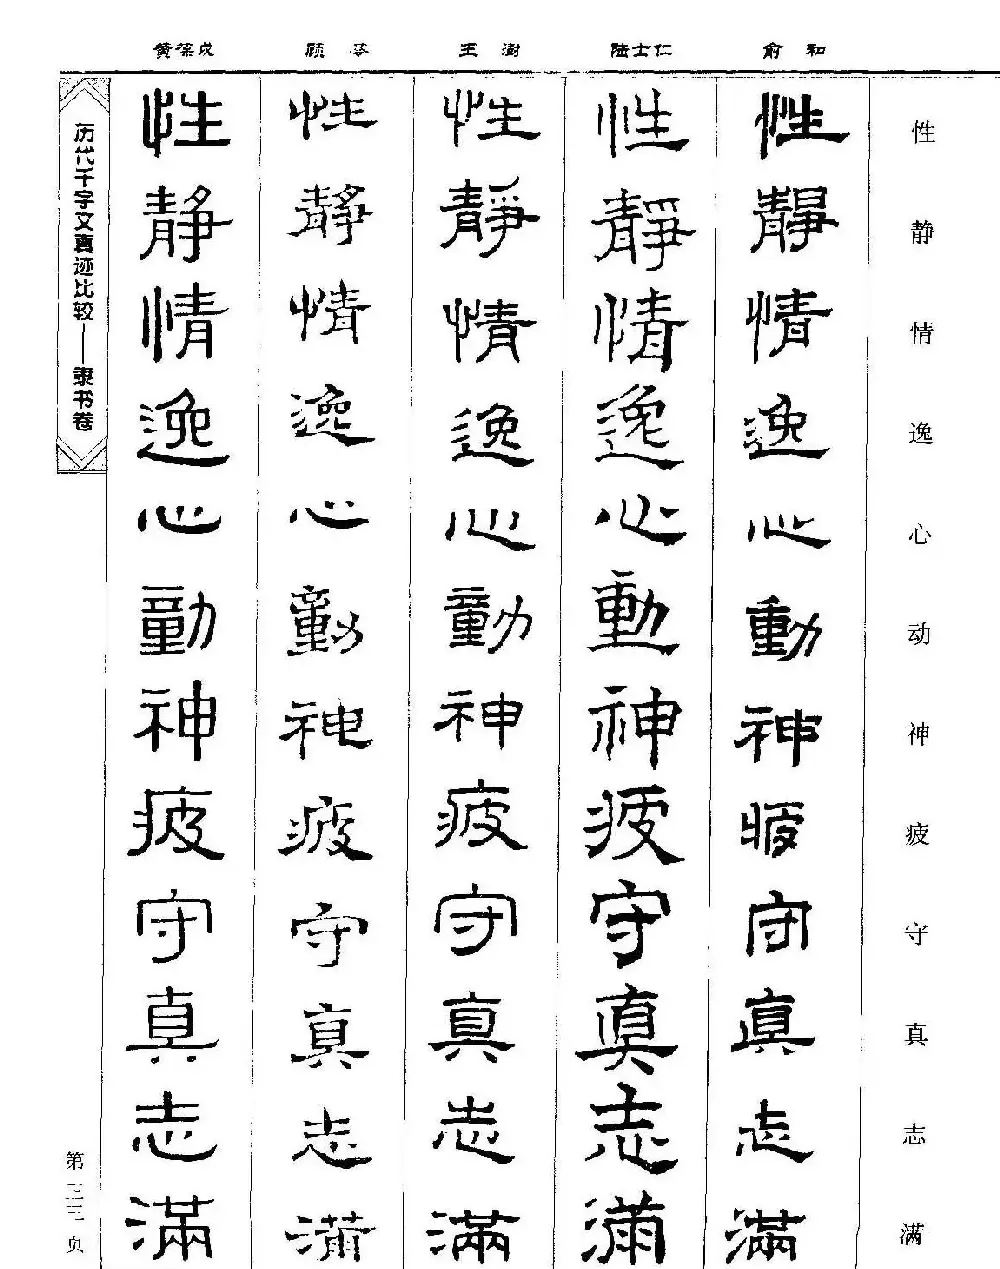 性静情逸心动神疲守真志满
俞和
性靜情逸心動神疲守真志滿
陆士仁
性靜情逸心動神疲守真志滿
王澍
性靜情逸心動神疲守真志滿
顾苓
性靜情逸心動神疲守真志滿
黄葆戉
性靜情逸心動神疲守真志滿
历代千字文真迹比较——隶书卷
第三三页